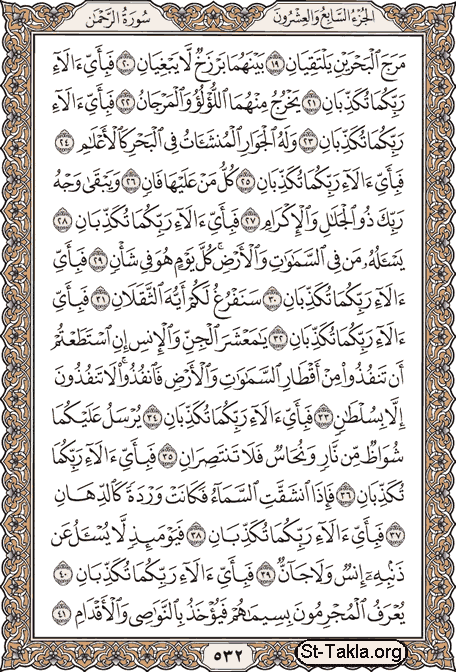 الجزء السابع والعشرون
سورة الرحمن
مَرَجَ ٱلْبَحْرَيْنِ يَلْتَقِيَانِ ١٩ بَيْنَهُمَا بَرْزَخٌ لَّا يَبْغِيَانِ ٢٠ فَبِأَيِّ ءَالَآءِ
رَبِّكُمَا تُكَذِّبَانِ ٢١ يَخْرُجُ مِنْهُمَا ٱللُّؤْلُؤُ وَٱلْمَرْجَانُ ٢٢ فَبِأَيِّ ءَالَآءِ
رَبِّكُمَا تُكَذِّبَانِ ٢٣ وَلَهُ ٱلْجَوَارِ ٱلْمُنشَـَٔاتُ فِى ٱلْبَحْرِ كَٱلْأَعْلَـٰمِ ٢٤
فَبِأَيِّ ءَالَآءِ رَبِّكُمَا تُكَذِّبَانِ ٢٥ كُلُّ مَنْ عَلَيْهَا فَانٍ ٢٦ وَيَبْقَىٰ وَجْهُ
رَبِّكَ ذُو ٱلْجَلَـٰلِ وَٱلْإِكْرَامِ ٢٧ فَبِأَيِّ ءَالَآءِ رَبِّكُمَا تُكَذِّبَانِ ٢٨
يَسْـَٔلُهُۥ مَن فِى ٱلسَّمَـٰوَٰتِ وَٱلْأَرْضِ ۚ كُلَّ يَوْمٍ هُوَ فِى شَأْنٍ ٢٩ فَبِأَيِّ
ءَالَآءِ رَبِّكُمَا تُكَذِّبَانِ ٣٠ سَنَفْرُغُ لَكُمْ أَيُّهَ ٱلثَّقَلَانِ ٣١ فَبِأَيِّ
ءَالَآءِ رَبِّكُمَا تُكَذِّبَانِ ٣٢ يَـٰمَعْشَرَ ٱلْجِنِّ وَٱلْإِنسِ إِنِ ٱسْتَطَعْتُمْ
أَن تَنفُذُوا۟ مِنْ أَقْطَارِ ٱلسَّمَـٰوَٰتِ وَٱلْأَرْضِ فَٱنفُذُوا۟ ۚ لَا تَنفُذُونَ
إِلَّا بِسُلْطَـٰنٍ ٣٣ فَبِأَيِّ ءَالَآءِ رَبِّكُمَا تُكَذِّبَانِ ٣٤ يُرْسَلُ عَلَيْكُمَا
شُوَاظٌ مِّن نَّارٍ وَنُحَاسٌ فَلَا تَنتَصِرَانِ ٣٥ فَبِأَيِّ ءَالَآءِ رَبِّكُمَا
تُكَذِّبَانِ ٣٦ فَإِذَا ٱنشَقَّتِ ٱلسَّمَآءُ فَكَانَتْ وَرْدَةً كَٱلدِّهَانِ
٣٧ فَبِأَيِّ ءَالَآءِ رَبِّكُمَا تُكَذِّبَانِ ٣٨ فَيَوْمَئِذٍ لَّا يُسْـَٔلُ عَن
ذَنۢبِهِۦٓ إِنسٌ وَلَا جَآنٌّ ٣٩ فَبِأَيِّ ءَالَآءِ رَبِّكُمَا تُكَذِّبَانِ ٤٠
يُعْرَفُ ٱلْمُجْرِمُونَ بِسِيمَـٰهُمْ فَيُؤْخَذُ بِٱلنَّوَٰصِى وَٱلْأَقْدَامِ ٤١
٥٣٢
St-Takla.org